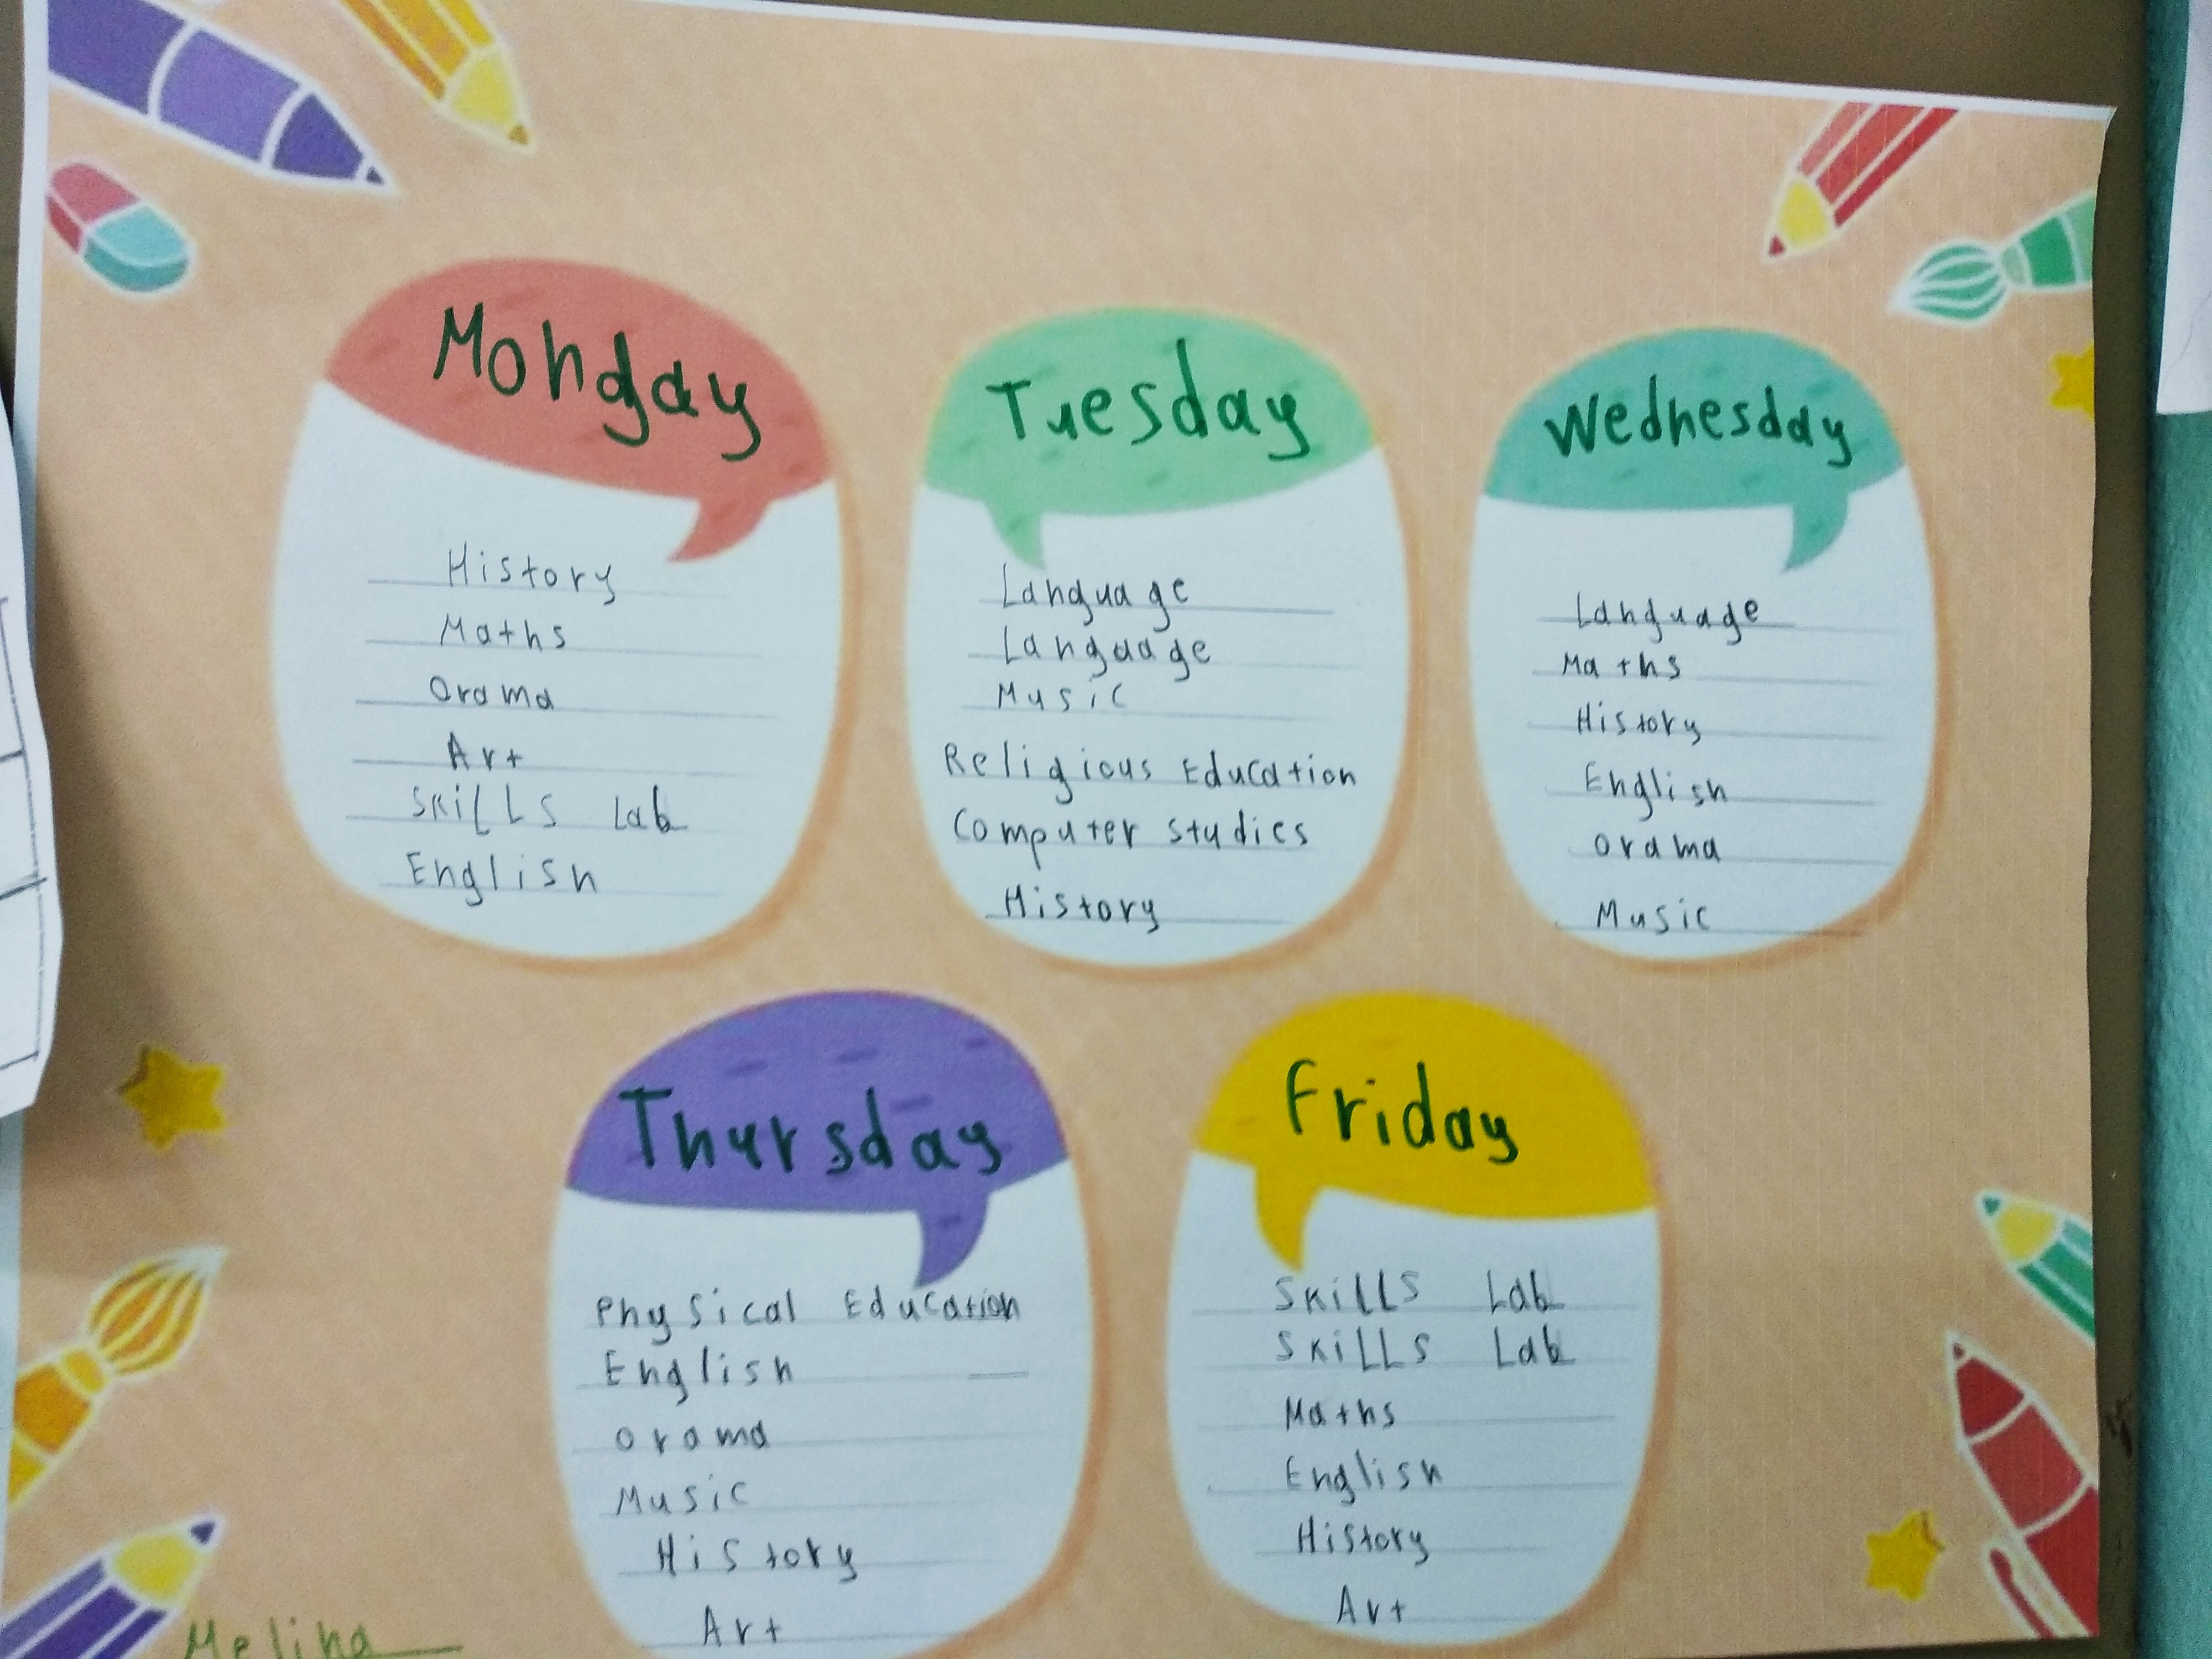 Monday
History
Maths
Drama
Art
Skills Lab
English
Tuesday
Language
Language
Music
Religious Education
Computer studies
History
Wednesday
Language
Maths
History
English
Drama
Music
Thursday
Physical Education
English
Drama
Music
History
Art
Friday
Skills Lab
Skills Lab
Maths
English
History
Art
Melina